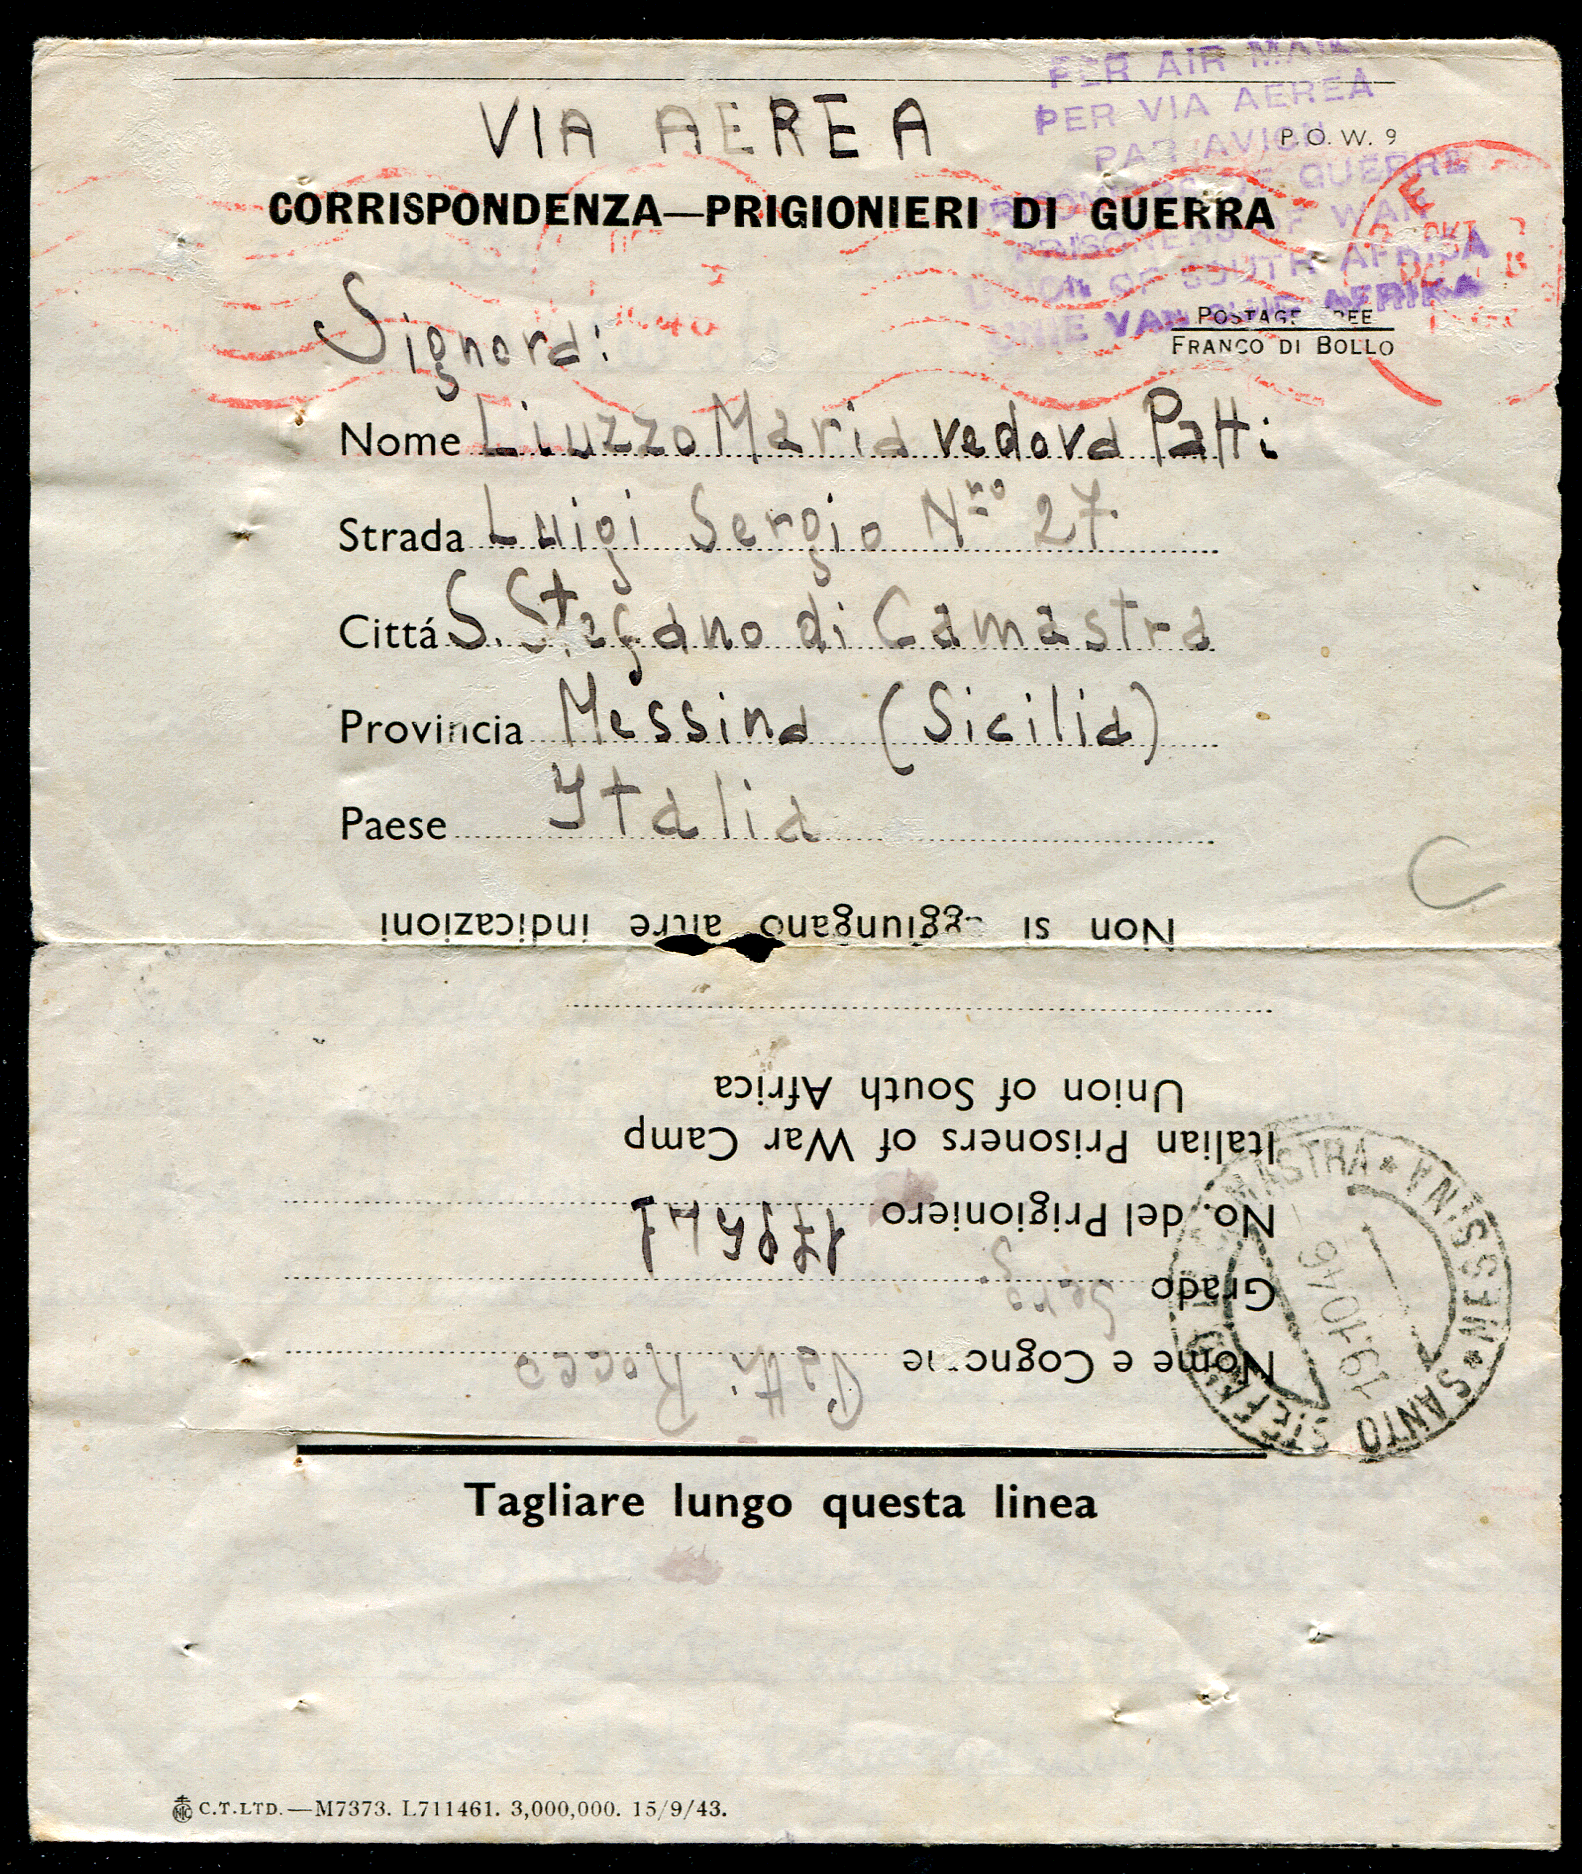 VIA AEREA
PER AIR MAIL
PER VIA AEREA
PAR AVION
P.O.W. 9
DE GUERRE
CORRISPONDENZA—PRIGIONIERI DI GUERRA
PRISONERS OF WAR
UNION OF SOUTH AFRICA
UNIE VAN AFRIKA
POSTAGE FREE
FRANCO DI BOLLO
Signora:
Nome Liuzzo Maria vedova Patti
Strada Luigi Sergio Nro 27
Cittá S. Stefano di Camastra
Provincia Messina (Sicilia)
Paese Italia
Non si aggiungano altre indicazioni
Union of South Africa
Italian Prisoners of War Camp
No. del Prigioniero
Grado Serg.
Nome e Cognome Patti Rocco
SANTO STEFANO CAMASTRA * MESSINA *
19.10.46
Tagliare lungo questa linea
C.T.LTD.—M7373. L711461. 3,000,000. 15/9/43.